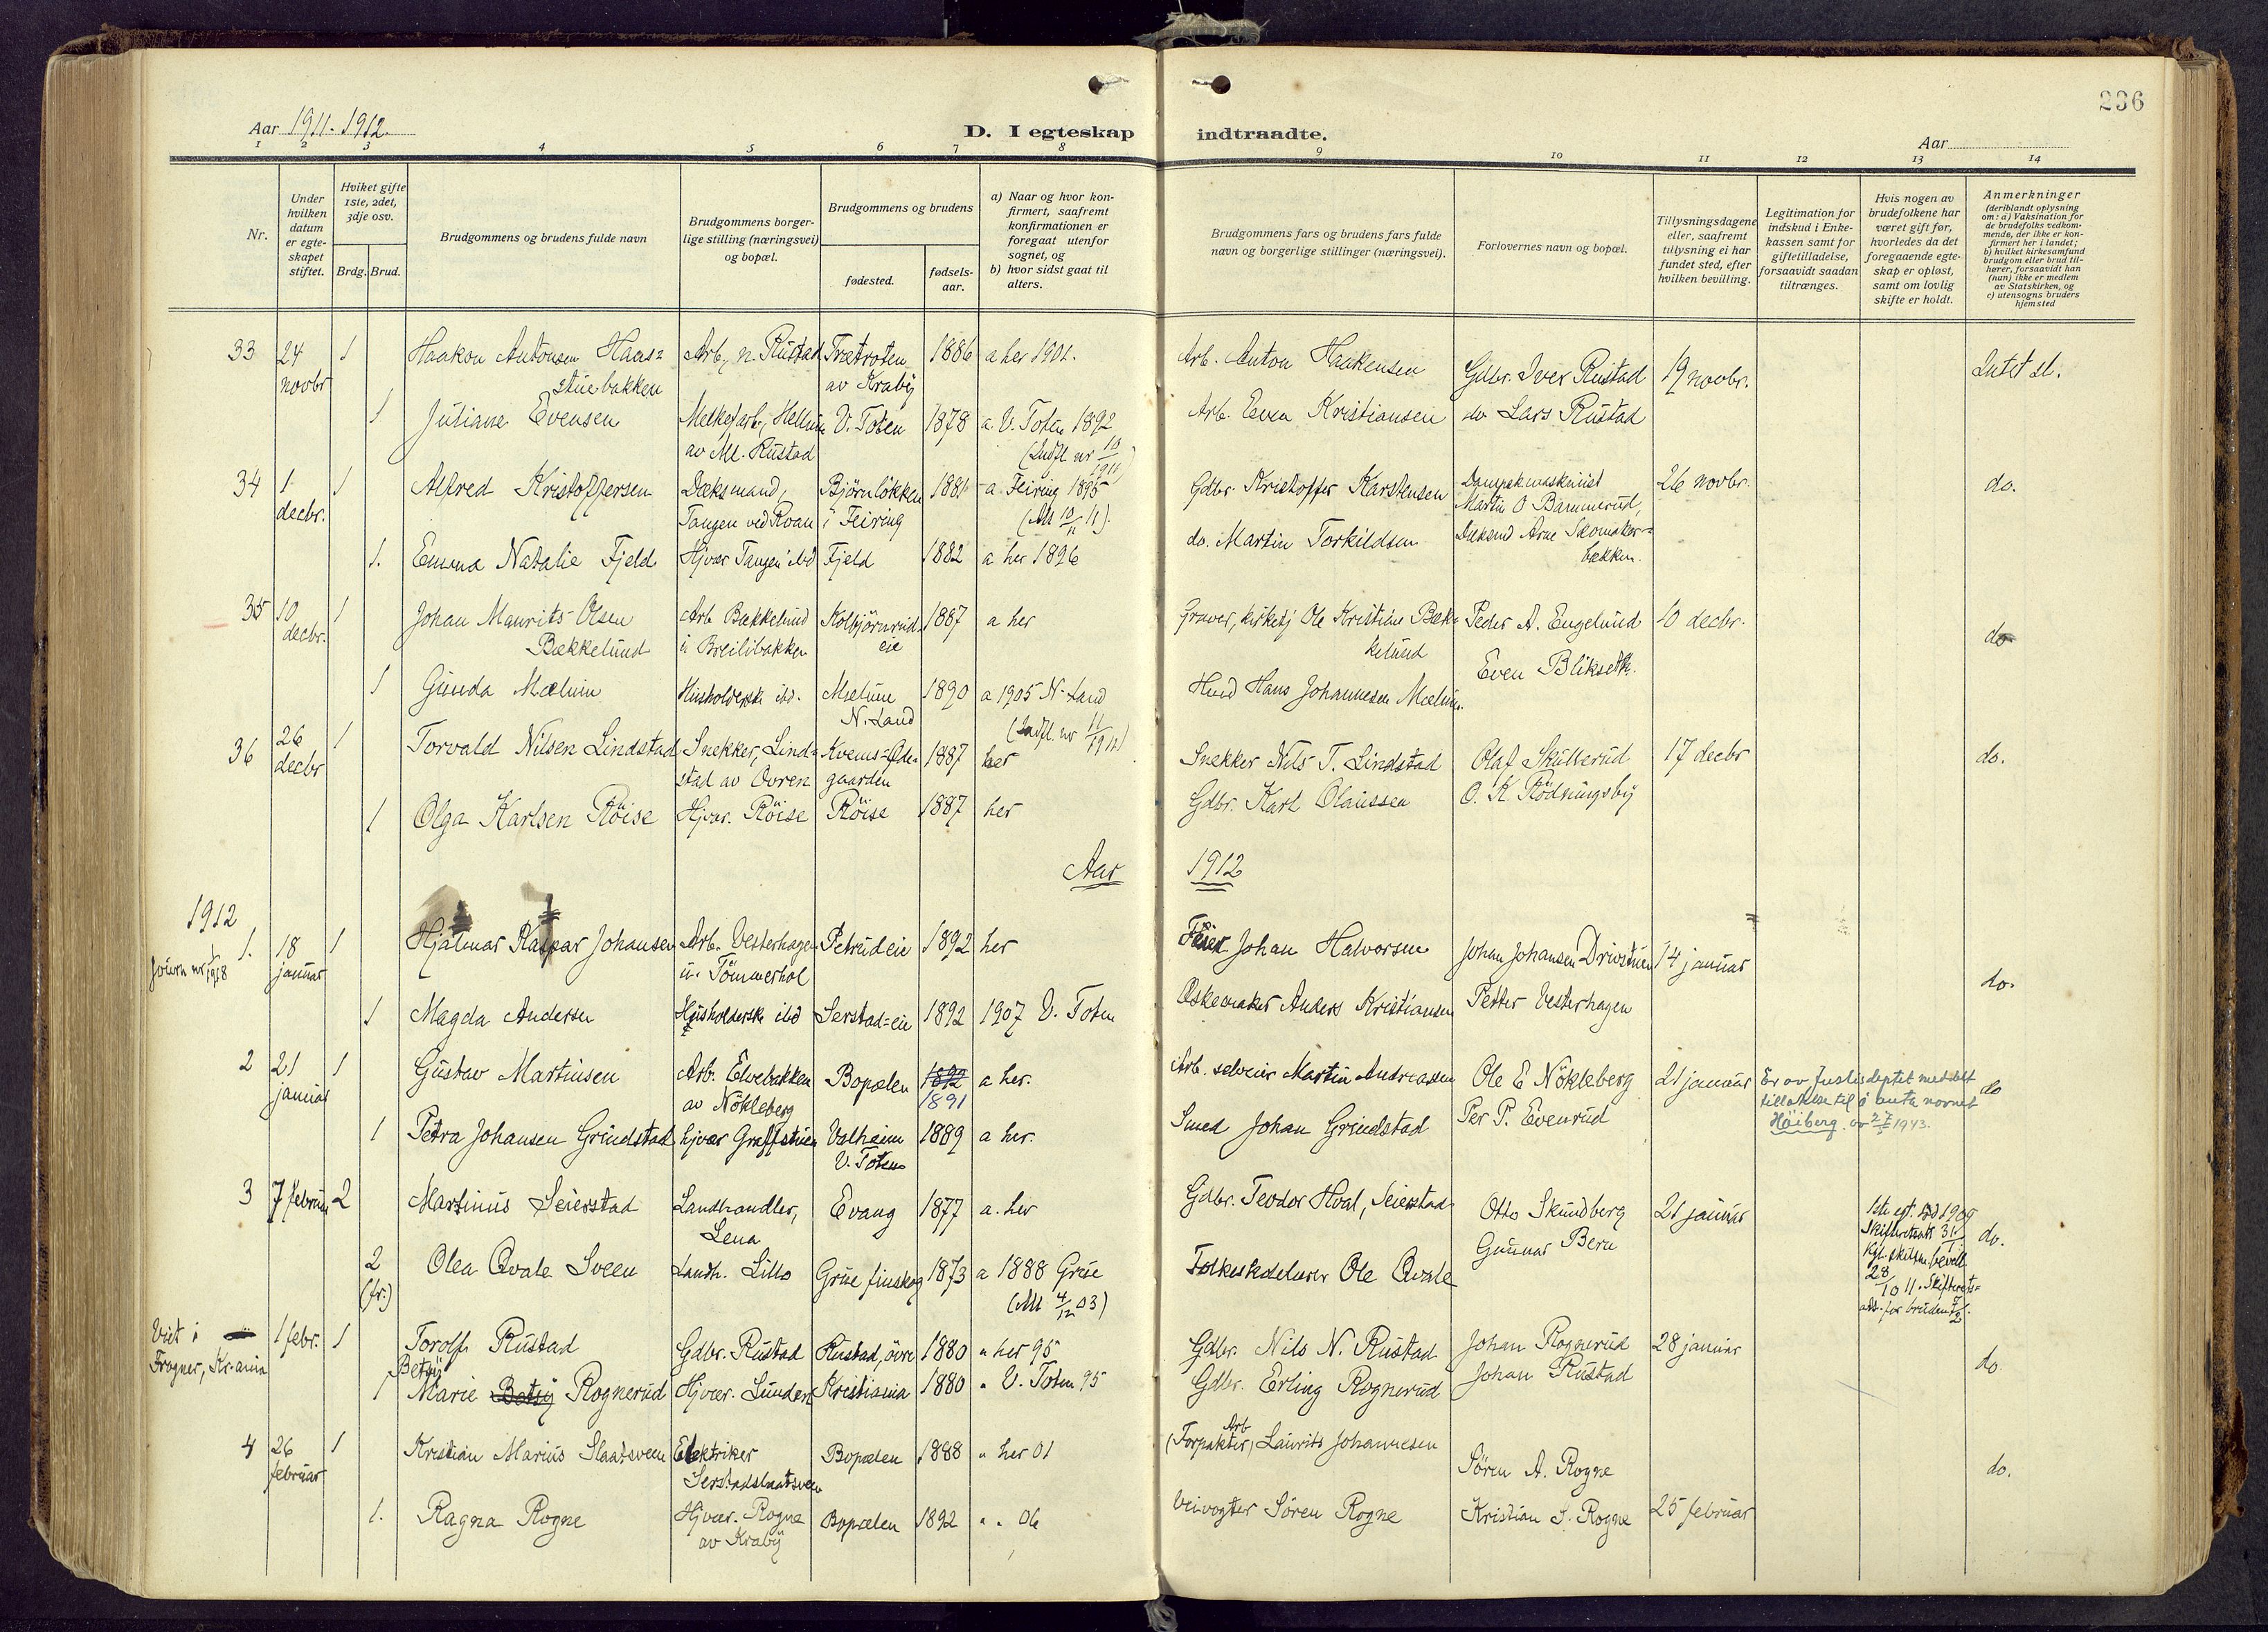 236
Aar 1911. 1912.
D. I egteskap indtraadte.
Aar
1 2 3 4 5 6 7 8 9 10 11 12 13 14
Nr.
Under hvilken datum er egteskapet stiftet.
Hviket gifte 1ste, 2det, 3dje osv.
Brdg. Brud.
Brudgommens og brudens fulde navn
Brudgommens borgerlige stilling (næringsvei) og bopæl.
Brudgommens og brudens
fødested.
fødselsaar.
a) Naar og hvor konfirmert, saafremt konfirmationen er foregaat utenfor sognet, og
b) hvor sidst gaat til alters.
Brudgommens fars og brudens fars fulde navn og borgerlige stillinger (næringsvei).
Forlovernes navn og bopæl.
Tillysningsdagene eller, saafremt tillysning ei har fundet sted, efter hvilken bevilling.
Legitimation for indskud i Enkekassen samt for giftetilladelse, forsaavidt saadan tiltrænges.
Hvis nogen av brudefolkene har været gift før, hvorledes da det foregaaende egteskap er opløst, samt om lovlig skifte er holdt.
Anmerkninger
(deriblandt oplysning om: a) Vaksination for de brudefolks vedkommende, der ikke er konfirmert her i landet; b) hvilket kirkesamfund brudgom eller brud tilhører, forsaavidt han (hun) ikke er medlem av Statskirken, og c) utensogns bruders hjemsted
33 24 novbr 1 Haakon Antonsen Haas=stuebakken Arb., n. Rustad Trætroten av Kraby 1886 a her 1901. Arb. Anton Haakensen Gdbr. Iver Rustad 19 novbr. Intet sl.
1 Juliane Evensen Melkefarb., Hellum av Ml. Rustad V. Toten 1878 a. V. Toten 1892 (Indfl nr 10/1911) Arb. Even Kristiansen do Lars Rustad
34 1 decbr. 1 Alfred Kristoffersen Dæksmand, Tangen ved Roan Björnlökken i Feiring 1881 a. Feiring 1895 (Att 10/11 11). Gdbr. Kristoffer Karstensen Dampskmaskinist Martin O Bammerud, 26 novbr. do.
1. Emma Natalie Fjeld Hjvær Tangen ibid Fjeld 1882 a her 1896 do. Martin Torkildsen Dæksmd Arne Skomaker=bakken.
35 10 decbr. 1 Johan Maurits Olsen Bækkelund Arb Bækkelund u Breilibakken Kolbjörnrud eie 1887 a her Graver, kirketj Ole Kristian Bækkelund Peder A. Engelund 10 decbr. do
1 Gunda Mælum Husholderske ibd. Mælum N. Land 1890 a 1905 N. Land (Indfl. nr 11/1911) Hmd Hans Johannesen Mælum. Even Blikseth.
36 26 decbr 1 Torvald Nilsen Lindstad Snekker, Lindstad av Ovren Kvems=Ødegaarden 1887 her Snekker Nils T. Lindstad Olaf Skullerud 17 decbr do.
1 Olga Karlsen Röise Hjvær. Röise Röise 1887 her Gdbr. Karl Olaussen O. K Rödningsby
Aar 1912
1912
Journ nr 1/1918
1. 18 januar 1 Hjalmar Kaspar Johansen Arb. Vesterhagen u. Tömmerhol Petrudeie 1892 her Feier Johan Halvorsen Johan Johansen Drivstuen 14 januar do.
1 Magda Andersen Husholderske ibid Serstad=eie 1892 1907 V. Toten Öskemaker Anders Kristiansen Petter Vesterhagen
2 21 januar 1 Gustav Martinsen Arb. Elvebakken av Nökleberg Bopælen 1892 1891 a her. Arb. selveier Martin Andreassen Ole E Nökleberg 21 januar Er av Justisdeptet meddelt tillatelse til å anta navnet Höiberg. av 27/5 1943. do
1 Petra Johansen Grindstad hjvær Graffstuen Valheim V. Toten 1889 a her. Smed Johan Grindstad Per P. Evenrud
3 7 februar 2 Martinus Seierstad Landhandler, Lena Evang 1877 a. her Gdbr. Teodor Hval, Seierstad Otto Skundberg 21 januar 1ste egt. 1909 Skifteretsatt 31/1. Kgl. skilsm.bevill. 28/10 11. Skifterets=att. for bruden 7/2. do.
2 (fr.) Olea Qvale Sveen Landh. Lillo Grue finskog 1873 a 1888 Grue (Att 4/12 03) Folkeskolelærer Ole Qvale Gunnar Bern
Viet i Frogner, Kr.ania 1 febr. 1 Torolf Rustad Gdbr. Rustad Rustad, övre 1880 " her 95 Gdbr. Nils N. Rustad Johan Rognerud 28 januar do
1 Marie Betsy Betsy Rognerud Hjvær. Sunder Kristiania 1880 " V. Toten 95 Gdbr. Erling Rognerud Johan Rustad
4 26 februar 1 Kristian Marius Slaatsveen Elektriker Serstadslaatsveen Bopælen 1888 " her 01 (Forpakter) Arb Laurits Johannesen Sören A. Rogne do.
1. Ragna Rogne Hjvær. Rogne av Kraby Bopælen 1892 " " 06 Veivogter Sören Rogne Kristian S. Rogne 25 februar